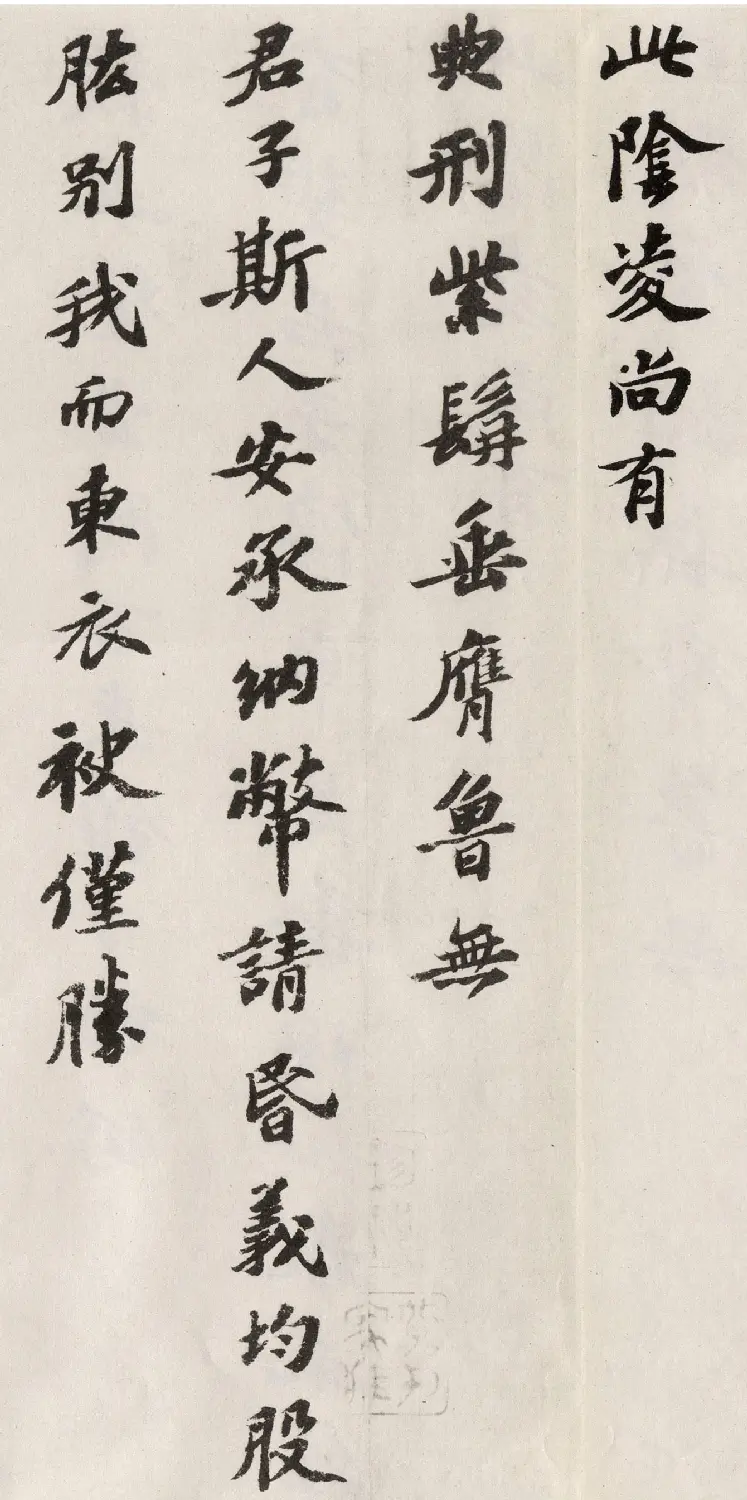 此陰凌尚有
典刑紫髯垂膺魯無
君子斯人安承納幣請昏義均股
肱別我而東衣袂僅勝